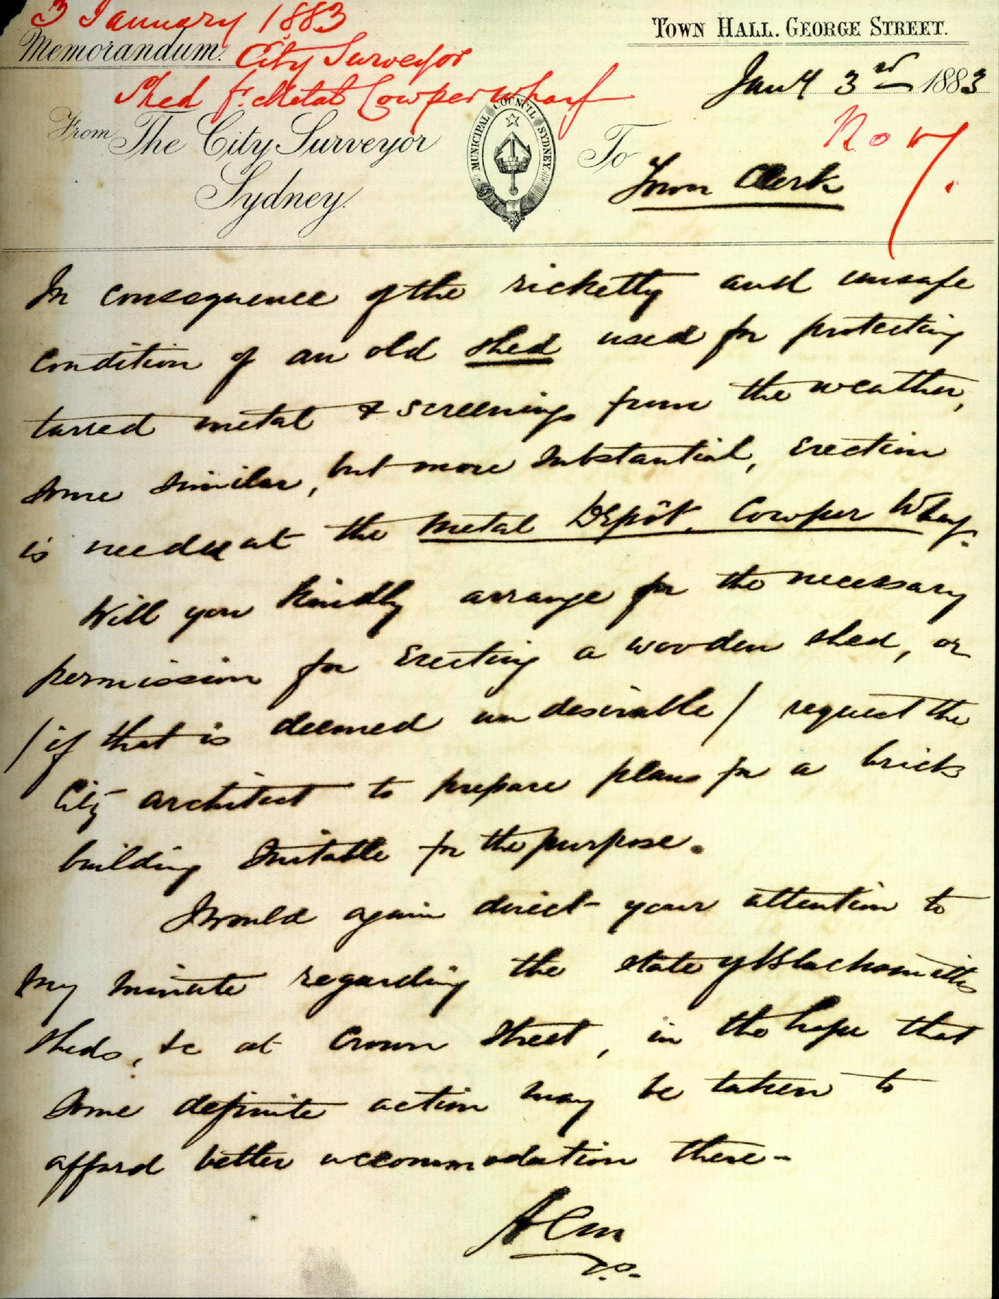 3 January 1883
Memorandum. City Surveyor
Shed f. Metal Cowper Wharf
TOWN HALL. GEORGE STREET.
Jany 3rd 1883
No 7.
From The City Surveyor
Sydney.
MUNICIPAL COUNCIL SYDNEY
To
Town Clerk
In consequence of the ricketty and unsafe
condition of an old shed used for protecting
tarred metal & screenings from the weather,
some similar, but more substantial, erection
is needed at the Metal Depôt, Cowper Whf.
Will you kindly arrange for the necessary
permission for erecting a wooden shed, or
/if that is deemed undesirable/ request the
City architect to prepare plans for a brick
building suitable for the purpose.
I would again direct your attention to
my minute regarding the state of Blacksmiths
sheds, &c at Crown Street, in the hope that
some definite action may be taken to
afford better accommodation there -